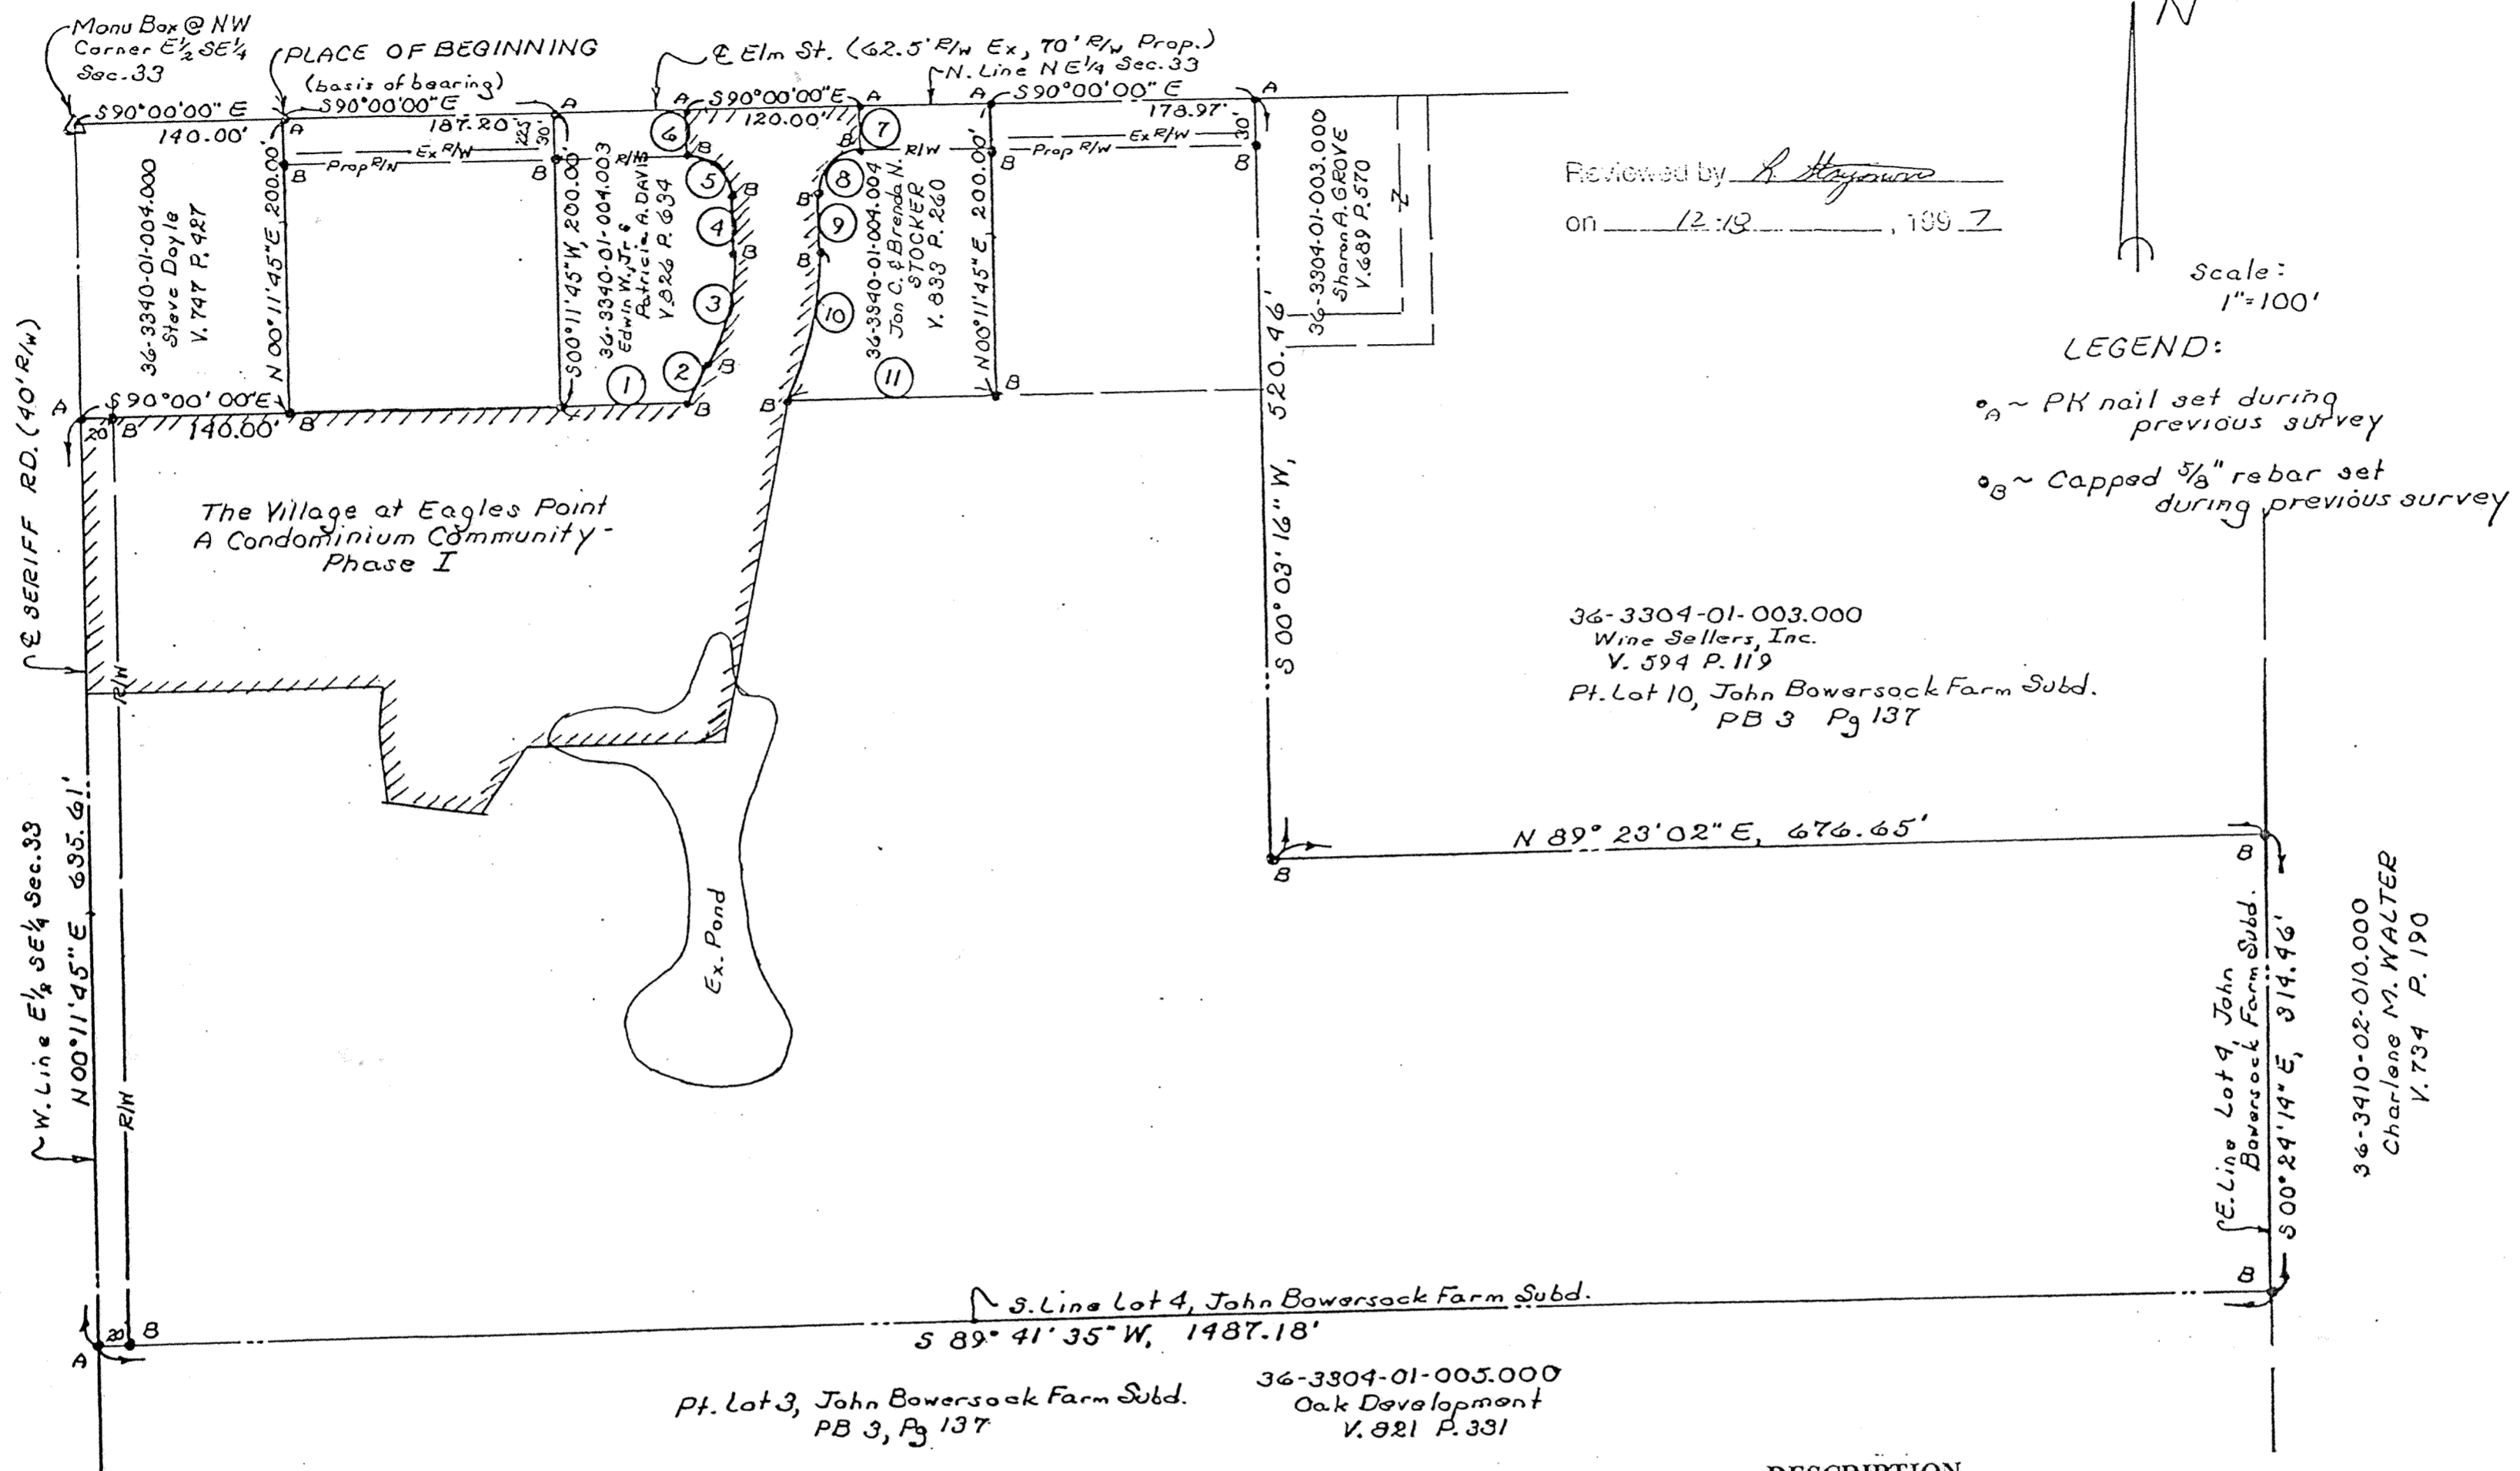 Monu Box @ NW
Corner E½ SE¼
Sec. 33
PLACE OF BEGINNING
(basis of bearing)
℄ Elm St. (62.5' R/W Ex, 70' R/W Prop.)
N. Line NE¼ Sec. 33
N
S90°00'00" E
140.00'
S90°00'00"E
187.20'
22.5
30'
A
A
A
S90°00'00"E
A
120.00'
A
S90°00'00" E
178.97'
A
30'
Ex R/W
Prop R/W
R/W
R/W
Ex R/W
Prop R/W
B
B
B
B
B
B
6
7
5
8
4
9
3
10
2
1
11
B
B
B
B
B
B
B
B
B
36-3340-01-004.000
Steve Doyle
V.747 P.427
N 00°11'45"E, 200.00'
S00°11'45"W, 200.00'
36-3340-01-004.003
Edwin W., Jr &
Patricia A. DAVIS
V.826 P.634
36-3340-01-004.004
Jon C. & Brenda N.
STOCKER
V. 833 P. 260
N00°11'45"E, 200.00'
36-3304-01-003.000
Sharon A. GROVE
V.689 P.570
Z
Reviewed by
on 12-18, 1997
Scale:
1"=100'
LEGEND:
A ~ PK nail set during
previous survey
B ~ Capped 5/8" rebar set
during previous survey
A
S90°00'00"E
20'
B
140.00'
B
℄ SERIFF RD. (40' R/W)
The Village at Eagles Point
A Condominium Community-
Phase I
S 00°03'16" W, 520.46'
36-3304-01-003.000
Wine Sellers, Inc.
V. 594 P. 119
Pt. Lot 10, John Bowersock Farm Subd.
PB 3 Pg 137
R/W
N 89° 23'02" E, 676.65'
B
B
W. Line E½ SE¼ Sec. 33
N00°11'45"E 695.61'
R/W
Ex. Pond
E. Line Lot 4, John
Bowersock Farm Subd.
S00°24'14"E, 314.46'
36-3410-02-010.000
Charlene M. WALTER
V. 734 P. 190
B
S. Line Lot 4, John Bowersock Farm Subd.
S 89° 41'35" W, 1487.18'
A
20'
B
Pt. Lot 3, John Bowersock Farm Subd.
PB 3, Pg 137
36-3304-01-005.000
Oak Development
V. 821 P. 331
DESCRIPTION